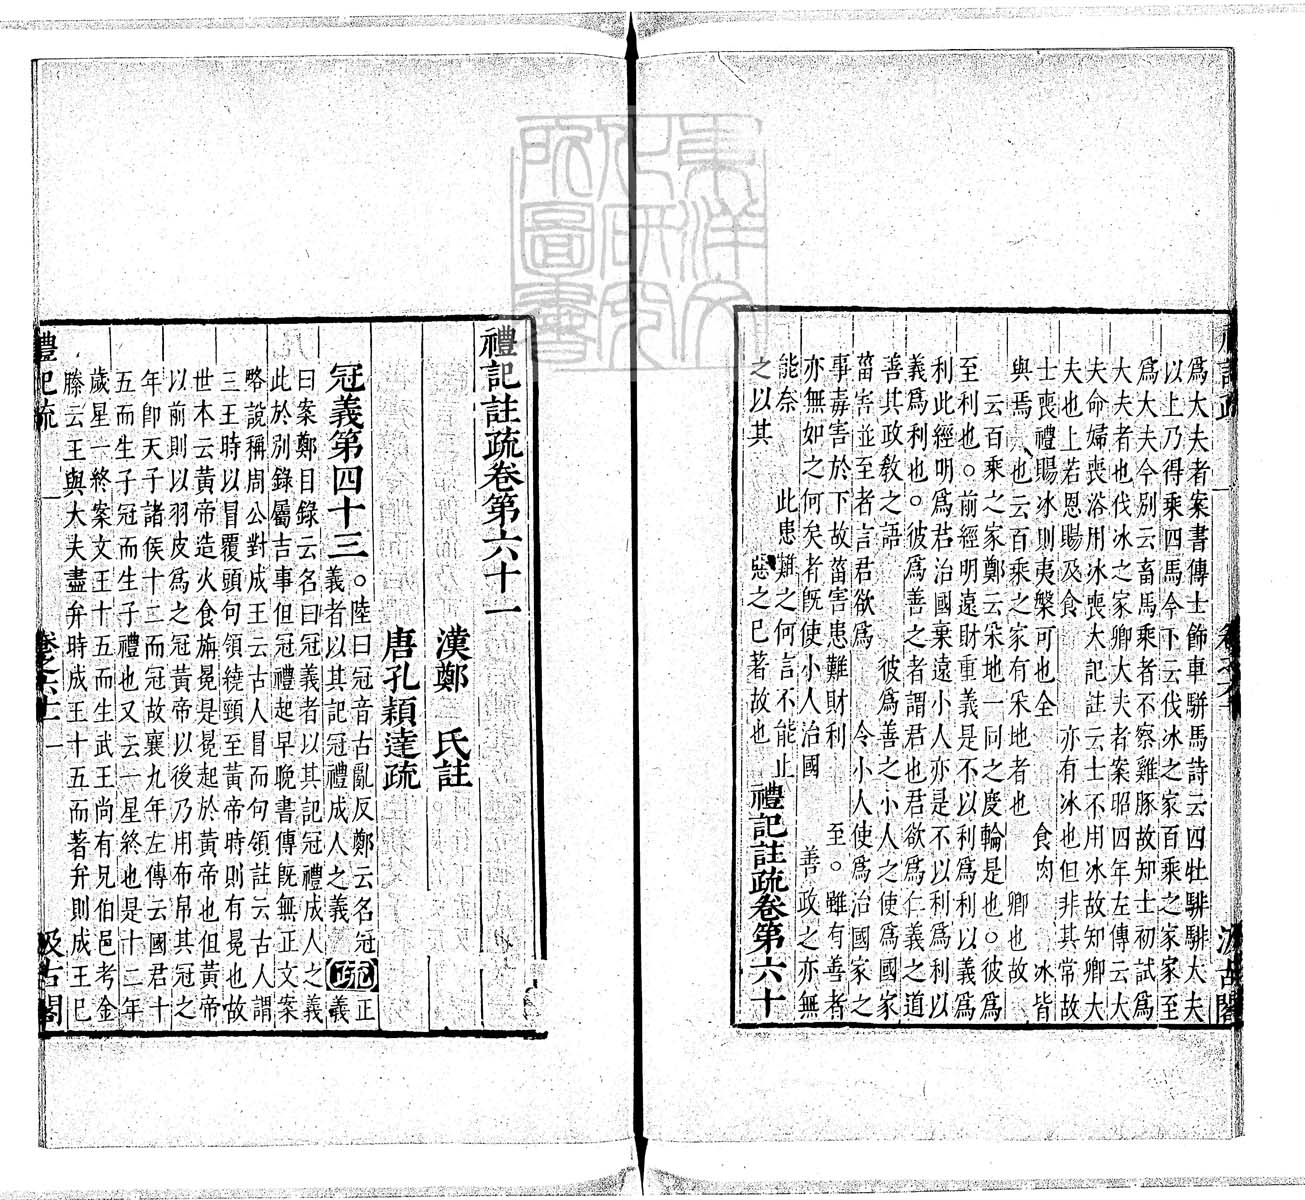 禮記疏 卷之六十 汲古閣
爲大夫者案書傳士飾車駢馬詩云四牡騑騑大夫
以上乃得乘四馬今下云伐冰之家百乘之家家至
爲大夫今別云畜馬乘者不察雞豚故知士初試爲
大夫者也伐冰之家卿大夫者案昭四年左傳云大
夫命婦喪浴用冰喪大記註云士不用冰故知卿大
夫也上若恩賜及食 亦有冰也但非其常故
士喪禮賜冰則夷槃可也全 食肉 冰皆
與焉 也云百乘之家有采地者也 卿也故
云百乘之家鄭云采地一同之廣輪是也。彼爲
至利也。前經明遠財重義是不以利爲利以義爲
利此經明爲君治國棄遠小人亦是不以利爲利以
義爲利也。彼爲善之者謂君也君欲爲仁義之道
善其政敎之語 彼爲善之小人之使爲國家
菑害並至者言君欲爲 令小人使爲治國家之
事毒害於下故菑害患難財利 至。雖有善者
亦無如之何矣者旣使小人治國 善政之亦無
能奈 此患難之何言不能止
之以其 惡之已著故也 禮記註疏卷第六十
禮記註疏卷第六十一
漢鄭 氏註
唐孔穎達疏
冠義第四十三。陸曰冠音古亂反鄭云名冠
義者以其記冠禮成人之義 疏 正義
曰案鄭目錄云名曰冠義者以其記冠禮成人之義
此於別錄屬吉事但冠禮起早晚書傳旣無正文案
略說稱周公對成王云古人冒而句領註云古人謂
三王時以冒覆頭句領繞頸至黃帝時則有冕也故
世本云黃帝造火食旃冕是冕起於黃帝也但黃帝
以前則以羽皮爲之冠黃帝以後乃用布帛其冠之
年卽天子諸侯十二而冠故襄九年左傳云國君十
五而生子冠而生子禮也又云一星終也是十二年
歲星一終案文王十五而生武王尚有兄伯邑考金
縢云王與大夫盡弁時成王十五而著弁則成王已
禮記疏 卷之六十一 一 汲古閣